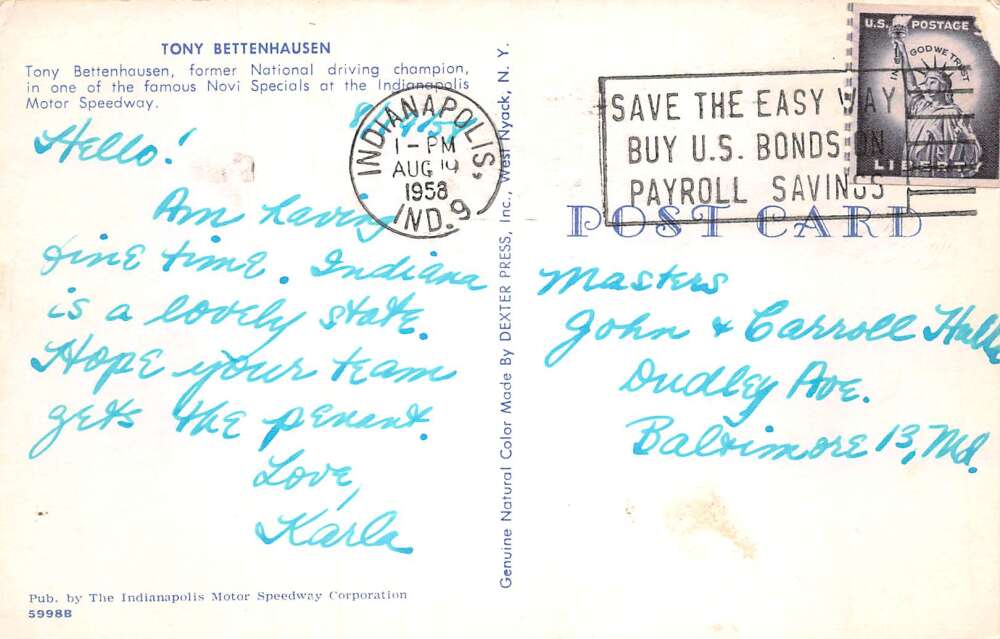 TONY BETTENHAUSEN
Tony Bettenhausen, former National driving champion,
in one of the famous Novi Specials at the Indianapolis
Motor Speedway.
Hello!
Am having
fine time. Indiana
is a lovely state.
Hope your team
gets the penant.
Love,
Karla
Pub. by The Indianapolis Motor Speedway Corporation
5998B
Genuine Natural Color Made By DEXTER PRESS, Inc., West Nyack, N. Y.
INDIANAPOLIS,
1-PM
AUG 19
1958
IND. 9
SAVE THE EASY WAY
BUY U.S. BONDS ON
PAYROLL SAVINGS
U.S. POSTAGE
IN GOD WE TRUST
LIBERTY
POST CARD
Masters
John & Carroll
Dudley Ave.
Baltimore 13, Md.